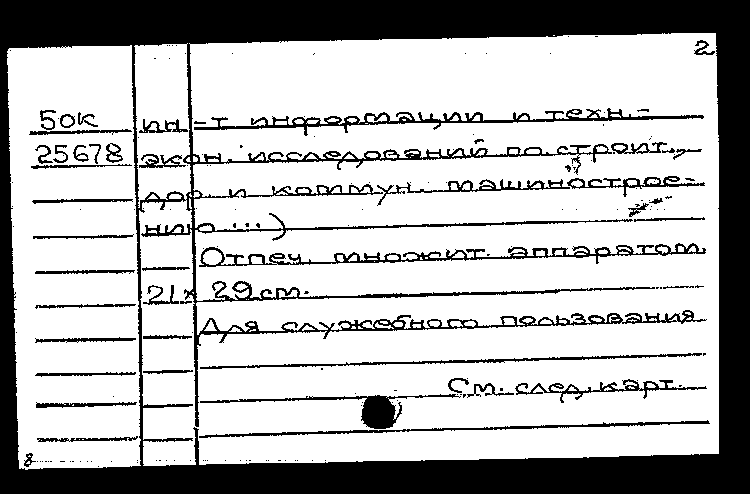 2
50к ин-т информации и техн.-
25678 экон. исследований по строит.,
дор. и коммун. машинострое-
нию ...)
Отпеч. множит. аппаратом
21 x 29 см.
Для служебного пользования
См. след. карт.
8